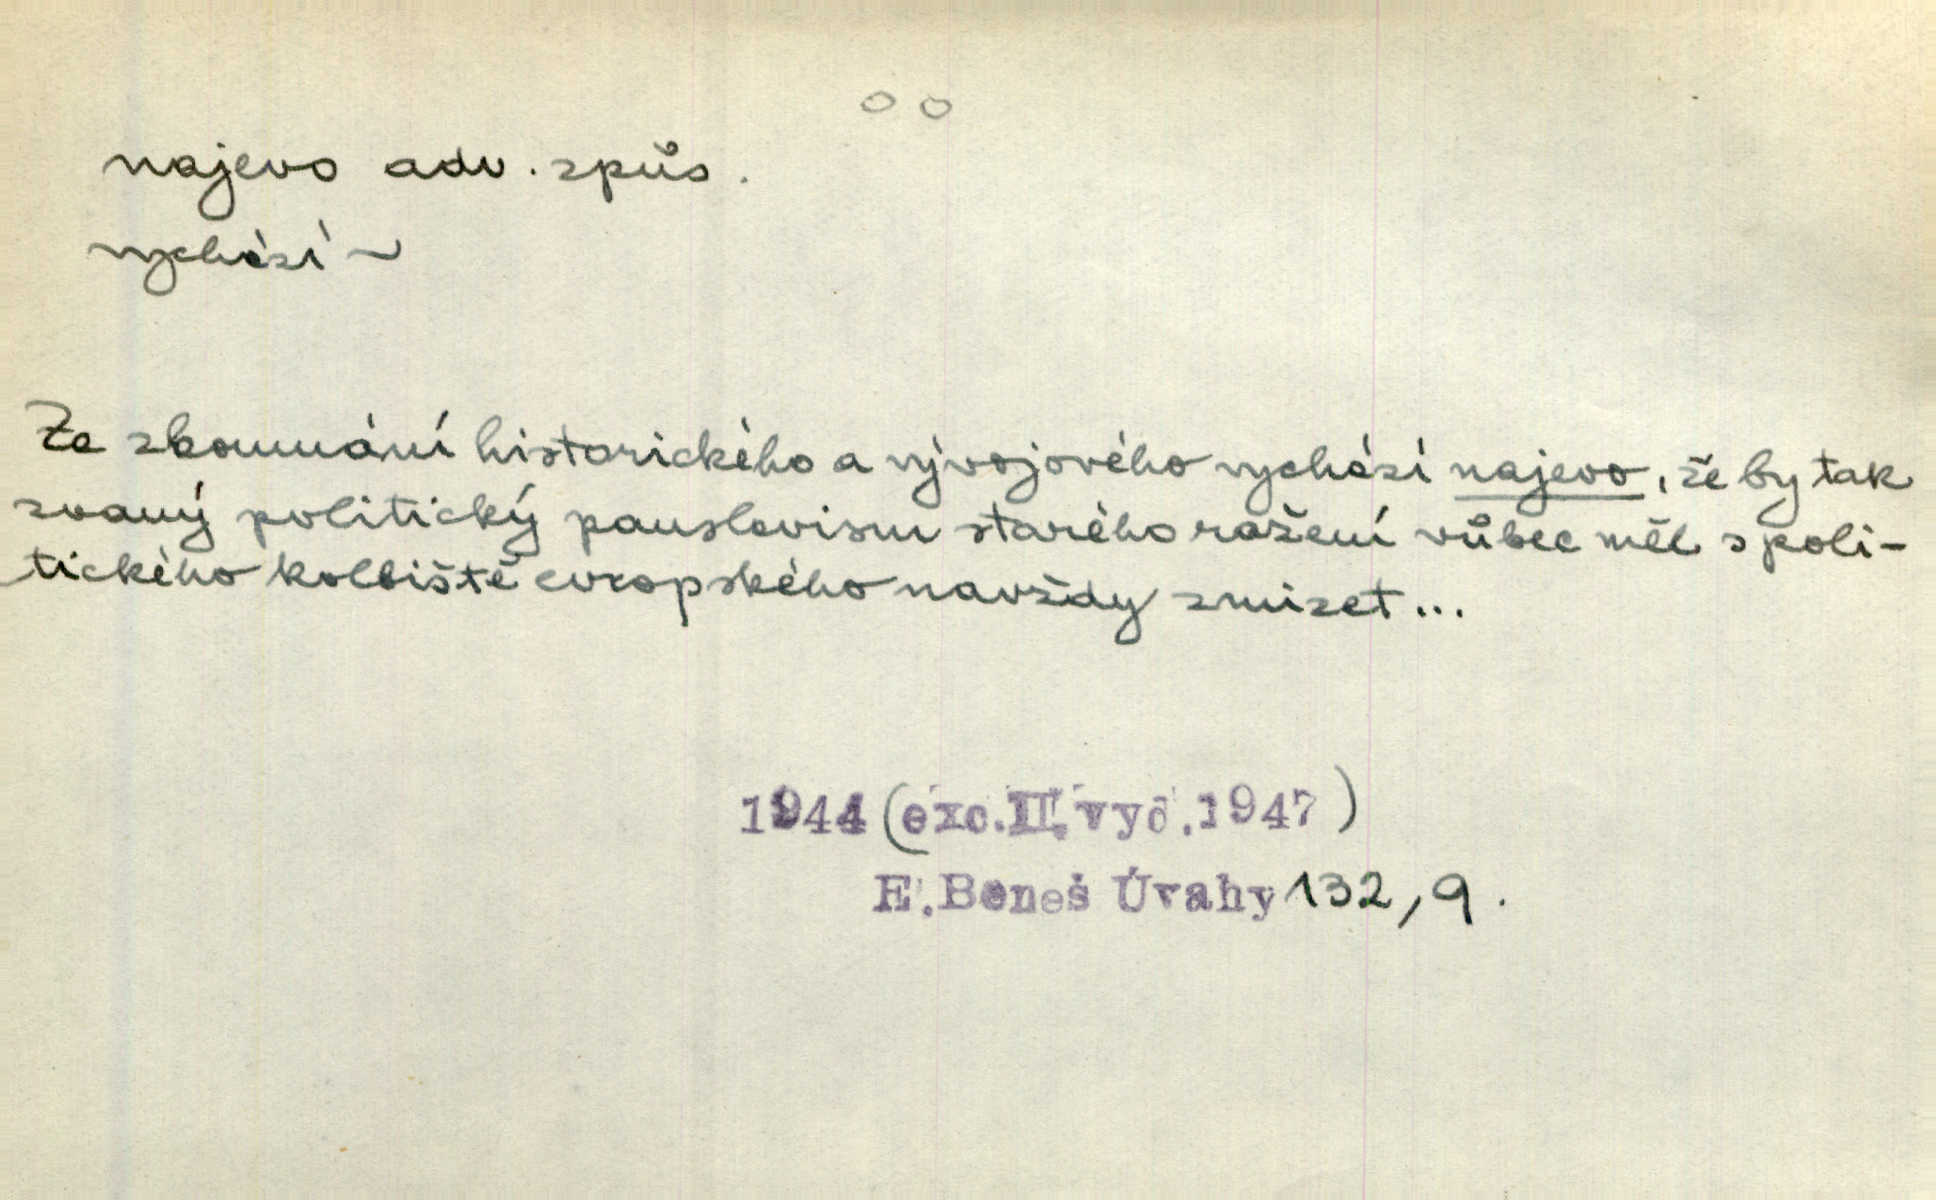 najevo adv. způs.
vychází ~
Ze zkoumání historického a vývojového vychází najevo, že by tak
zvaný politický panslavism starého ražení vůbec měl s poli-
tického kolbiště evropského navždy zmizet...
1944 (exc. II. vyd. 1947)
E. Beneš Úvahy 132, 9.